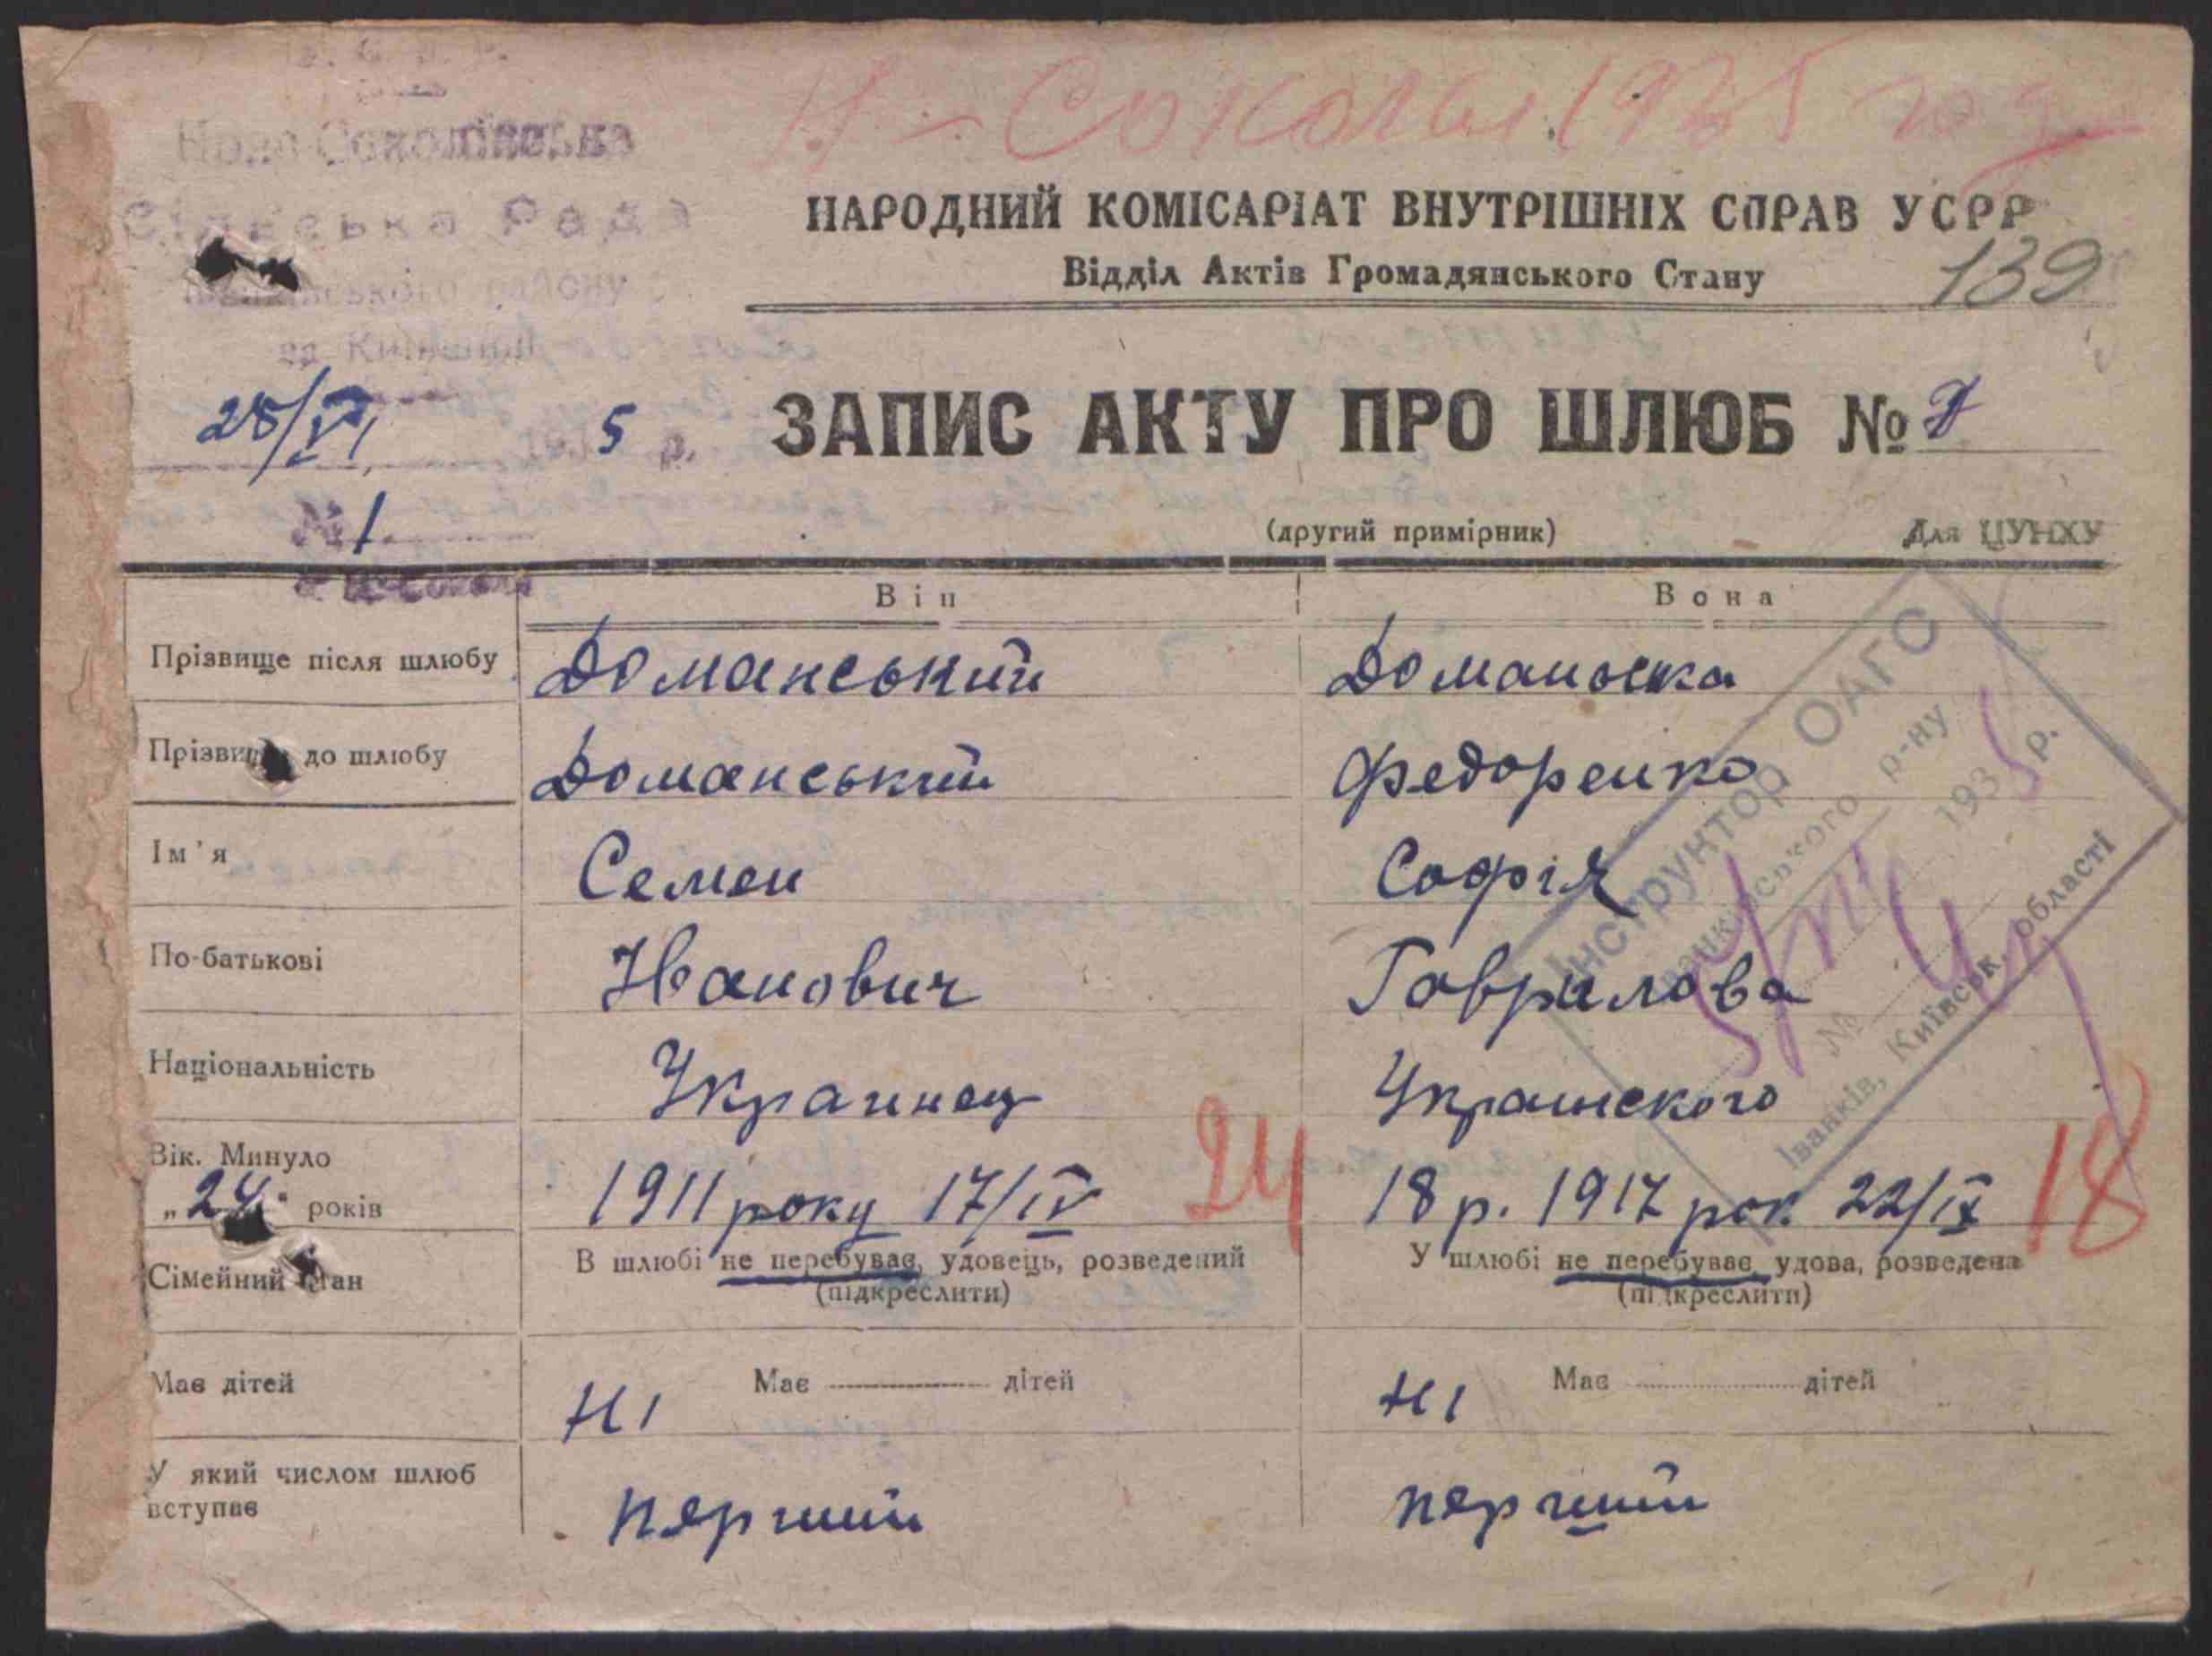 Н-Соколы 1935 год
Ново Соколівська
Сільська Рада
району
на Київщині
НАРОДНИЙ КОМІСАРІАТ ВНУТРІШНІХ СПРАВ УСРР
Відділ Актів Громадянського Стану
139
28/VI 5 р.
ЗАПИС АКТУ ПРО ШЛЮБ №
№ 1
(другий примірник) Для ЦУНХУ
Він Вона
Прізвище після шлюбу Доманський Доманьска
Прізвище до шлюбу Доманський Федоренко
Ім'я Семен Софія
По-батькові Иванович Гаврилова
Національність Украинец Украинского
Вік. Минуло
„24" років 1911 року 17/IV 24 18 р. 1917 рок 22/IX 18
Сімейний стан В шлюбі не перебуває, удовець, розведений У шлюбі не перебуває, удова, розведена
(підкреслити) (підкреслити)
Має дітей Ні Має дітей Ні Має дітей
У який числом шлюб
вступає перший перший
Інструктор ОАГС
Іванківського р-ну
1935 р.
№
Іванків, Київськ. області